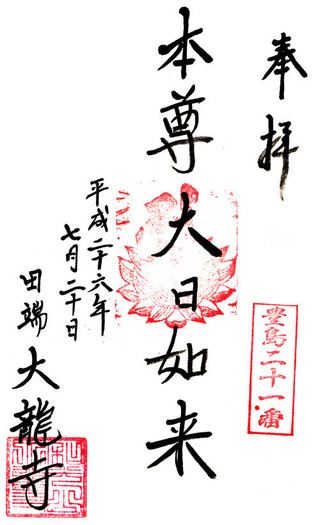 奉拝
豊島二十一番
本尊大日如来
平成二十六年
七月二十日
田端大龍寺